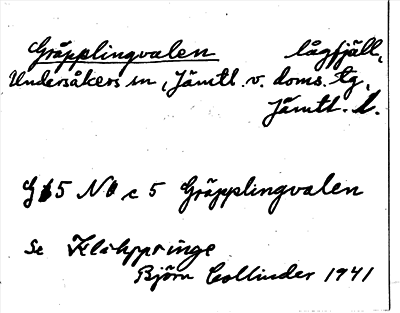 Gräpplingvalen lågfjäll,
Undersåkers sn, Jämtl. v. doms. tg,
Jämtl. l.
G 5 NV c 5 Gräpplingvalen
Se
Björn Collinder 1941